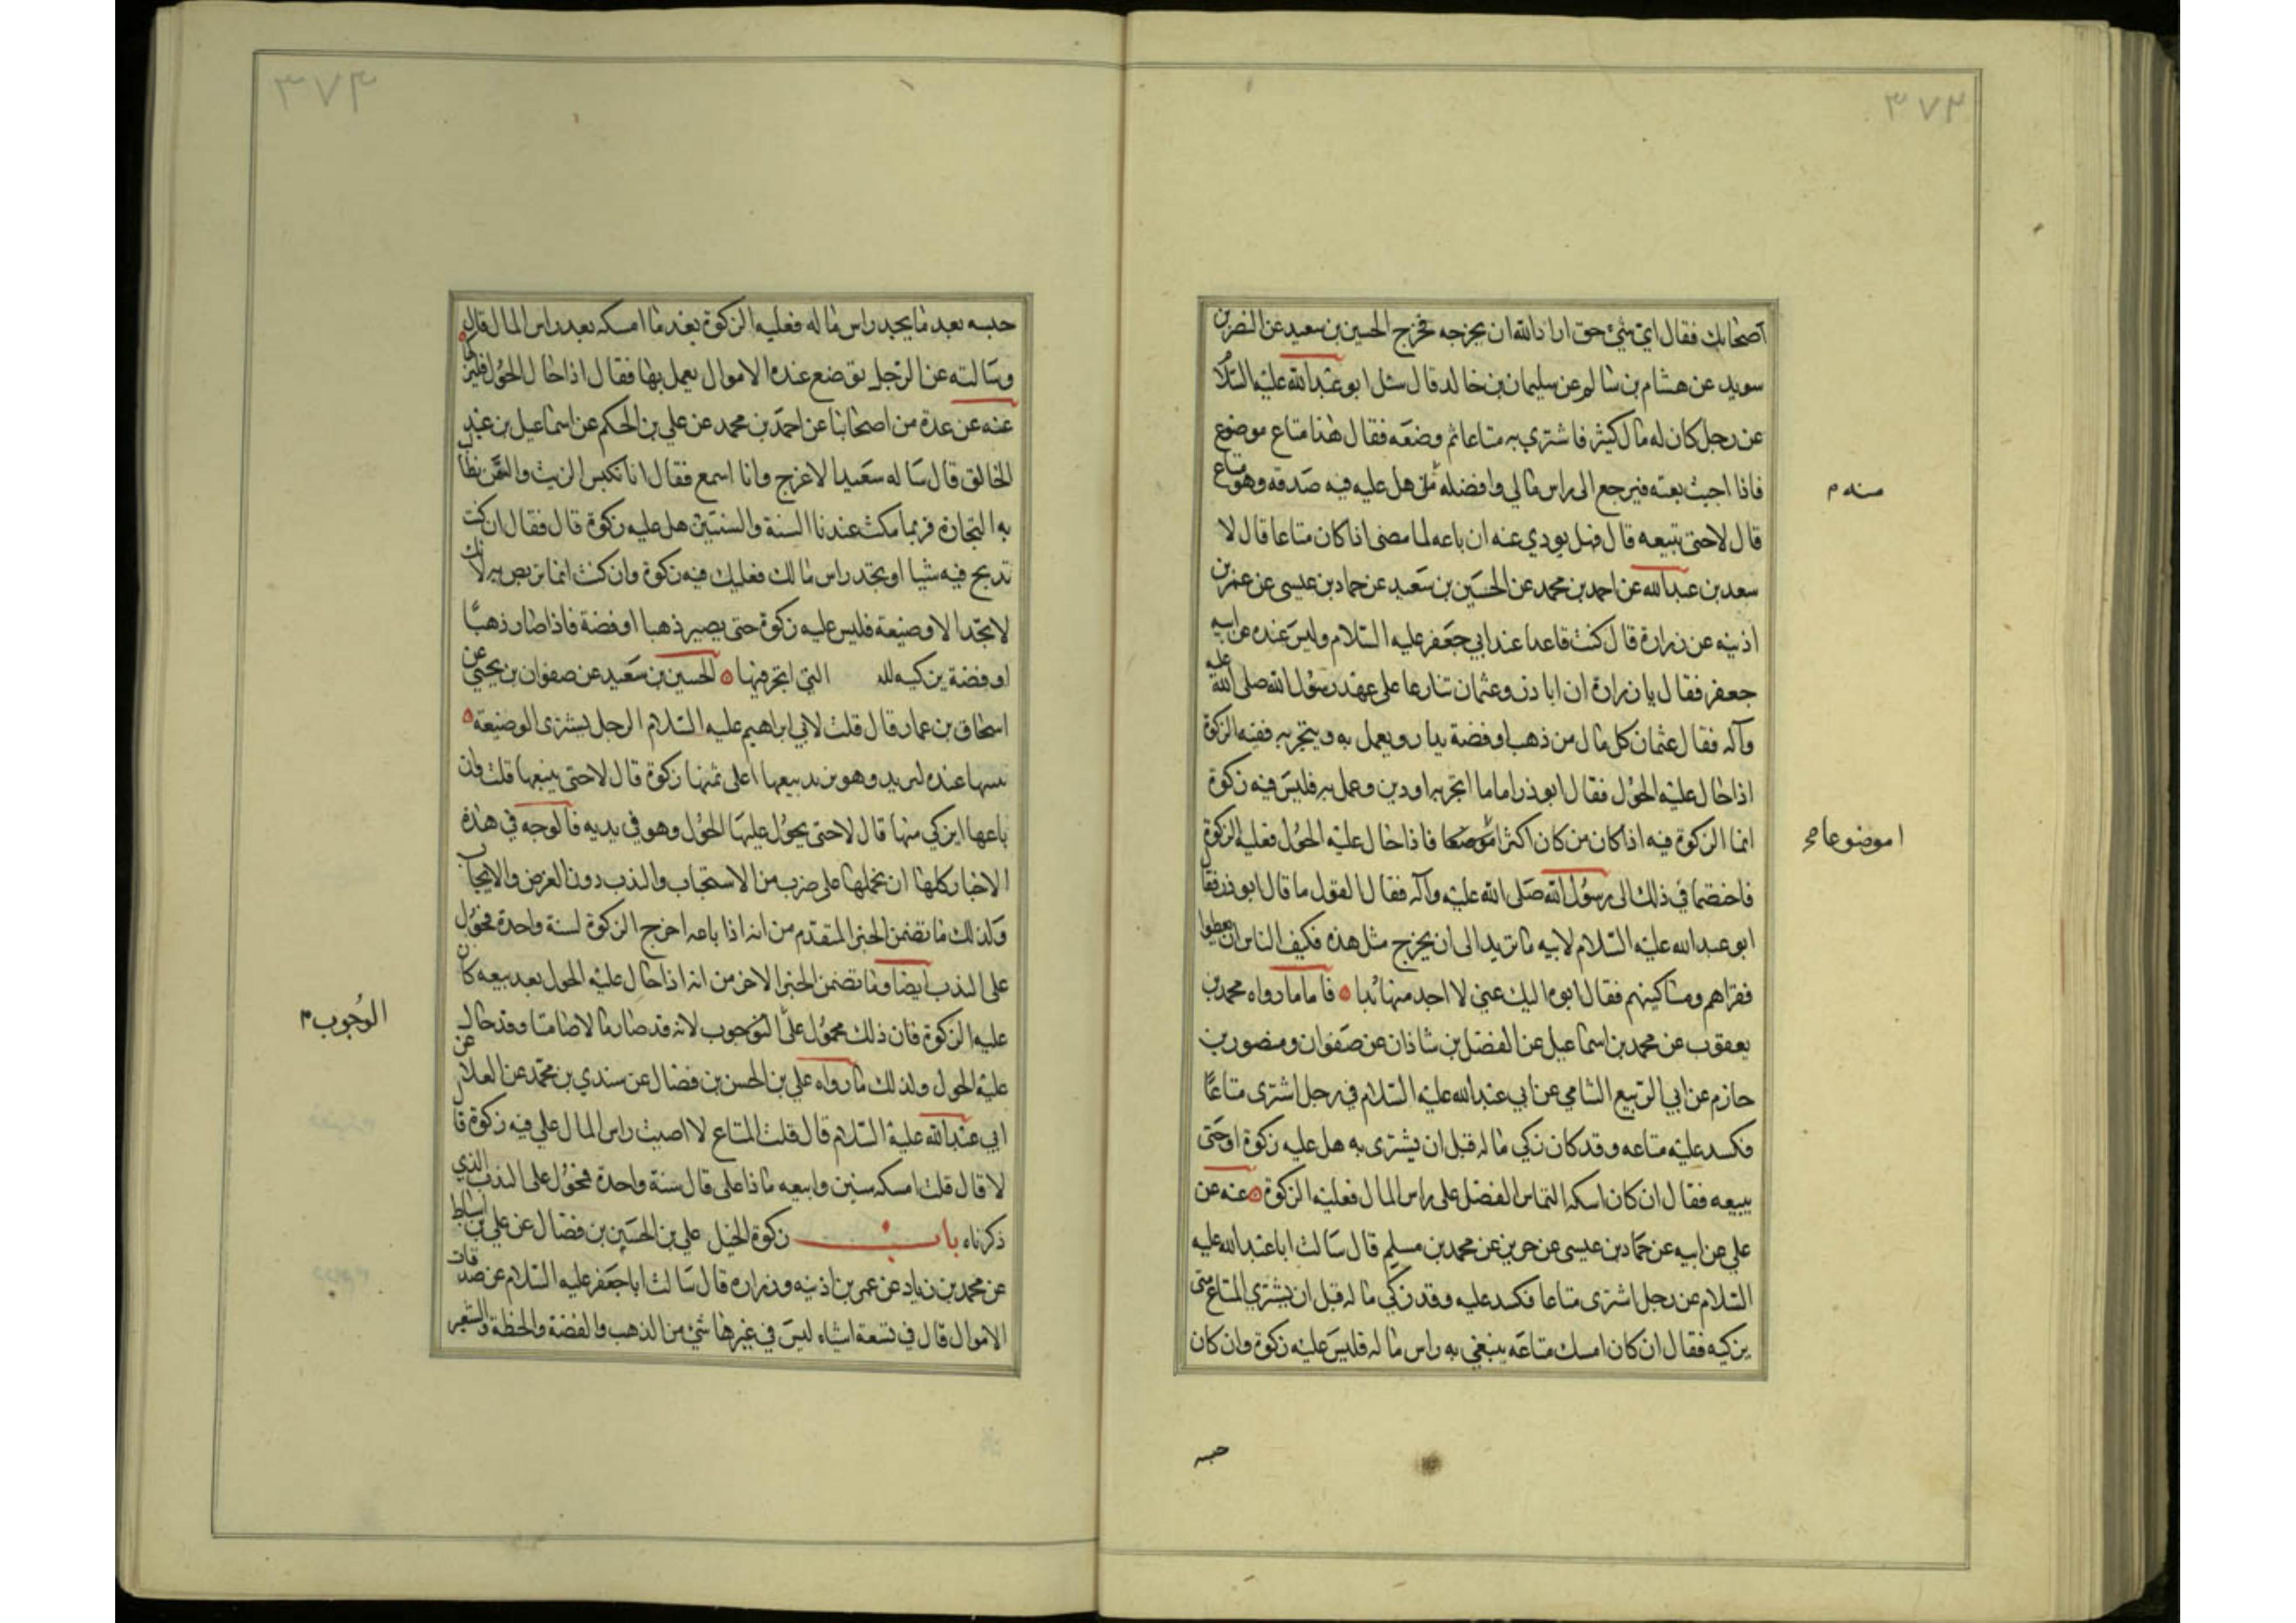 ٣٧٣
اصحابك فقال اي شيء حق اراد الله ان يخرجه فخرج الحسين بن سعيد عن النضر بن
سويد عن هشام بن سالم عن سليمان بن خالد قال سئل ابو عبد الله عليه السلام
عن رجل كان له مال كثير فاشترى به متاعا ثم وضعه فقال هذا متاع موضوع
فاذا احببت بعته فيرجع الى راس مالي وافضله هل عليه فيه صدقة وهو متاع
منه م
قال لا حتى تبيعه قال فهل يودي عنه ان باعه لما مضى اذا كان متاعا قال لا
سعد بن عبد الله عن احمد بن محمد عن الحسين بن سعيد عن حماد بن عيسى عن عمر بن
اذينه عن زرارة قال كنت قاعدا عند ابي جعفر عليه السلام وليس عنده غير ابنه
جعفر فقال يا زرارة ان ابا ذر وعثمان تنازعا على عهد رسول الله صلى الله عليه
وآله فقال عثمان كل مال من ذهب او فضة يدار ويعمل به ويتجر به ففيه الزكوة
اذا حال عليه الحول فقال ابو ذر اما ما اتجر به او دين وعمل به فليس فيه زكوة
انما الزكوة فيه اذا كان من كان اكثرا فاذا حال عليه الحول فعليه الزكوة
ا موضوعا صح
فاختصما في ذلك الى رسول الله صلى الله عليه وآله فقال القول ما قال ابو ذر فقال
ابو عبد الله عليه السلام لابيه ما تريد الى ان يخرج مثل هذه فكيف الناس ان يعطوا
فقراهم ومساكينهم فقال ابوه اليك عني لا اجد منها بدا فاما ما رواه محمد بن
يعقوب عن محمد بن اسماعيل عن الفضل بن شاذان عن صفوان ومنصور بن
حازم عن ابي الربيع الشامي عن ابي عبد الله عليه السلام في رجل اشترى متاعا
فكسد عليه متاعه وقد كان زكى ماله قبل ان يشترى به هل عليه زكوة او حتى
يبيعه فقال ان كان امسكه التماس الفضل على راس المال فعليه الزكوة عنه عن
علي عن ابيه عن حماد بن عيسى عن حريز عن محمد بن مسلم قال سالت ابا عبد الله عليه
السلام عن رجل اشترى متاعا فكسد عليه وقد زكى ماله قبل ان يشتري المتاع متى
يزكيه فقال ان كان امسك متاعه يبتغي به راس ماله فليس عليه زكوة وان كان
حبسه
٣٧٤
حبسه بعد ما يجد راس ماله فعليه الزكوة بعد ما امسكه بعد راس المال قال
وسالته عن الرجل توضع عنده الاموال يعمل بها فقال اذا حال الحول فليزكها
عنه عن عدة من اصحابنا عن احمد بن محمد عن علي بن الحكم عن اسماعيل بن عبد
الخالق قال ساله سعيد الاعرج وانا اسمع فقال انا نكبس الزيت والسمن نطلب
به التجارة فربما مكث عندنا السنة والسنتين هل عليه زكوة قال فقال ان كنت
تربح فيه شيا او تجد راس مالك فعليك فيه زكوة وان كنت انما تربص به لانك
لا تجد الا وضيعة فليس عليه زكوة حتى يصير ذهبا او فضة فاذا صار ذهبا
او فضة يزكيه لله التي اتجر فيها الحسين بن سعيد عن صفوان بن يحيى عن
اسحاق بن عمار قال قلت لابي ابراهيم عليه السلام الرجل يشترى الوضيعة
عنده ليزيد وهو يريد بيعها اعلى ثمنها زكوة قال لا حتى يبيعها قلت فان
باعها ايزكي منها قال لا حتى يحول عليها الحول وهو في يديه فالوجه في هذه
الاخبار كلها ان نحملها على ضرب من الاستحباب والندب دون الفرض والايجاب
وكذلك ما تضمن الخبر المتقدم من انه اذا باعه اخرج الزكوة لسنة واحدة فمحمول
على الندب ايضا وما تضمن الخبر الاخر من انه اذا حال عليه الحول بعد بيعه كان
عليه الزكوة فان ذلك محمول على الوجوب لانه قد صار مالا صامتا وقد حال
الوجوب م
عليه الحول ولذلك ما رواه علي بن الحسن بن فضال عن سندي بن محمد عن العلا عن
ابي عبد الله عليه السلام قال قلت المتاع لا اصيب راس المال علي فيه زكوة قال
لا قال قلت امسكه سنين وابيعه ماذا علي قال سنة واحدة فمحمول على الندب الذي
ذكرناه باب زكوة الخيل علي بن الحسين بن فضال عن علي بن اسباط
عن محمد بن زياد عن عمر بن اذينه وزراره قال سالت ابا جعفر عليه السلام عن صدقات
الاموال قال في تسعة اشياء ليس في غيرها شيء من الذهب والفضة والحنطة والشعير